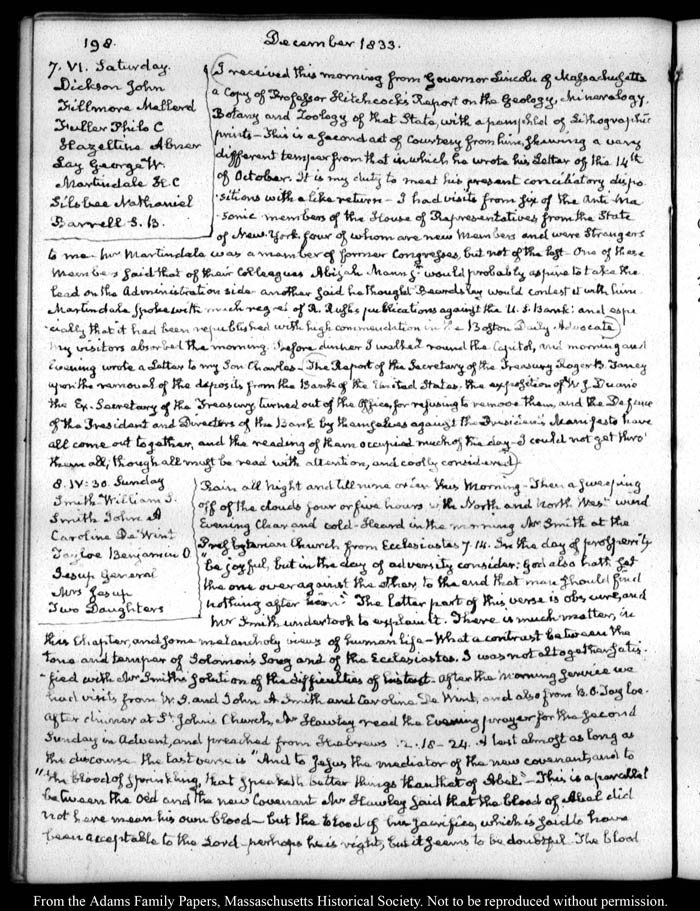 198.
December 1833.
7. VI. Saturday.
Dickson John
Fillmore Mallerd
Fuller Philo C
Hazeltine Abner
Lay George W.
Martindale H. C
Silsbee Nathaniel
Barrell S. B.
I received this morning from Governor Lincoln of Massachusetts
a Copy of Professor Hitchcock's Report on the Geology, Mineralogy,
Botany and Zoology of that State, with a pamphlet of Lithographic
prints – This is a second act of Courtesy from him, shewing a very
different temper from that in which he wrote his Letter of the 14th
of October. It is my duty to meet his present conciliatory dispo-
sitions with a like return – I had visits from six of the Anti Ma-
sonic members of the House of Representatives from the State
of New York, four of whom are new Members and were Strangers
to me. Mr Martindale was a member of former Congresses, but not of the last – One of these
Members said that of their Colleagues Abijah Mann Jr would probably aspire to take the
lead on the Administration side – another said he thought Beardsley would contest it with him.
Martindale spoke with much regret of R. Rush's publications against the U. S. Bank: and espe-
cially that it had been republished with high commendation in the Boston Daily Advocate
My visitors absorbed the morning. Before dinner I walked round the Capitol, and morning and
Evening wrote a Letter to my Son Charles – The Report of the Secretary of the Treasury Roger B. Taney
upon the removal of the deposits from the Bank of the United States. the exposition of W. J. Duane
the Ex-Secretary of the Treasury, turned out of the Office, for refusing to remove them, and the Defence
of the President and Directors of the Bank by themselves against the President's Manifesto have
all come out together, and the reading of them occupied much of the day – I could not get thro'
them all, though all must be read with attention, and coolly considered
8. IV:30. Sunday
Smith William S.
Smith John A
Caroline De Wint
Tayloe Benjamin O.
Jesup General
Mrs Jesup
Two Daughters
Rain all Night and till nine or ten this Morning – Then a sweeping
off of the clouds four or five hours with North and North West wind
Evening Clear and cold – Heard in the morning Mr Smith at the
Presbyterian Church from Ecclesiastes 7.14. In the day of prosperity
"be joyful, but in the day of adversity consider: God also hath set
the one over against the other, to the end that man should find
nothing after him." The latter part of this verse is obscure, and
Mr Smith undertook to explain it. There is much matter, in
this Chapter, and some melancholy views of human life – What a contrast between the
tone and temper of Solomon's Song and of the Ecclesiastes. I was not altogether satis-
fied with Mr Smith's solution of the difficulties of his text. After the morning service we
had visits from W. S. and John A Smith and Caroline De Wint, and also from B. O. Tayloe.
After dinner at St John's Church, Mr Hawley read the Evening prayer for the second
Sunday in Advent, and preached from Hebrews 12. 18–24. A text almost as long as
the discourse – the last verse is "And to Jesus the mediator of the new covenant, and to
"the blood of sprinkling, that speaketh better things than that of Abel." – This is a parallel
between the Old and the new Covenant Mr Hawley said that the blood of Abel did
not here mean his own blood – but the blood of his sacrifice, which is said to have
been acceptable to the Lord – perhaps he is right, but it seems to be doubtful. The blood
From the Adams Family Papers, Massachusetts Historical Society. Not to be reproduced without permission.